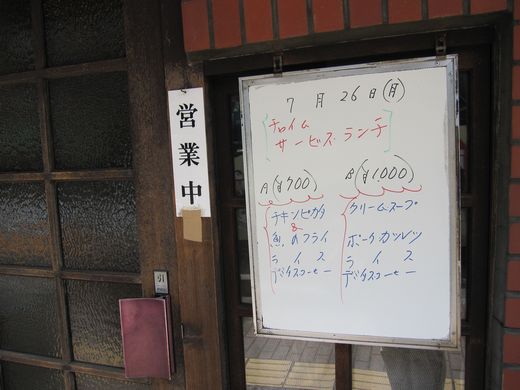 営業中
引
7月26日(月)
チロイム
サービス・ランチ
A (¥700)
チキンピカタ
&
魚のフライ
ライス
デミタスコーヒー
B (¥1000)
クリームスープ
ポークカツレツ
ライス
デミタスコーヒー